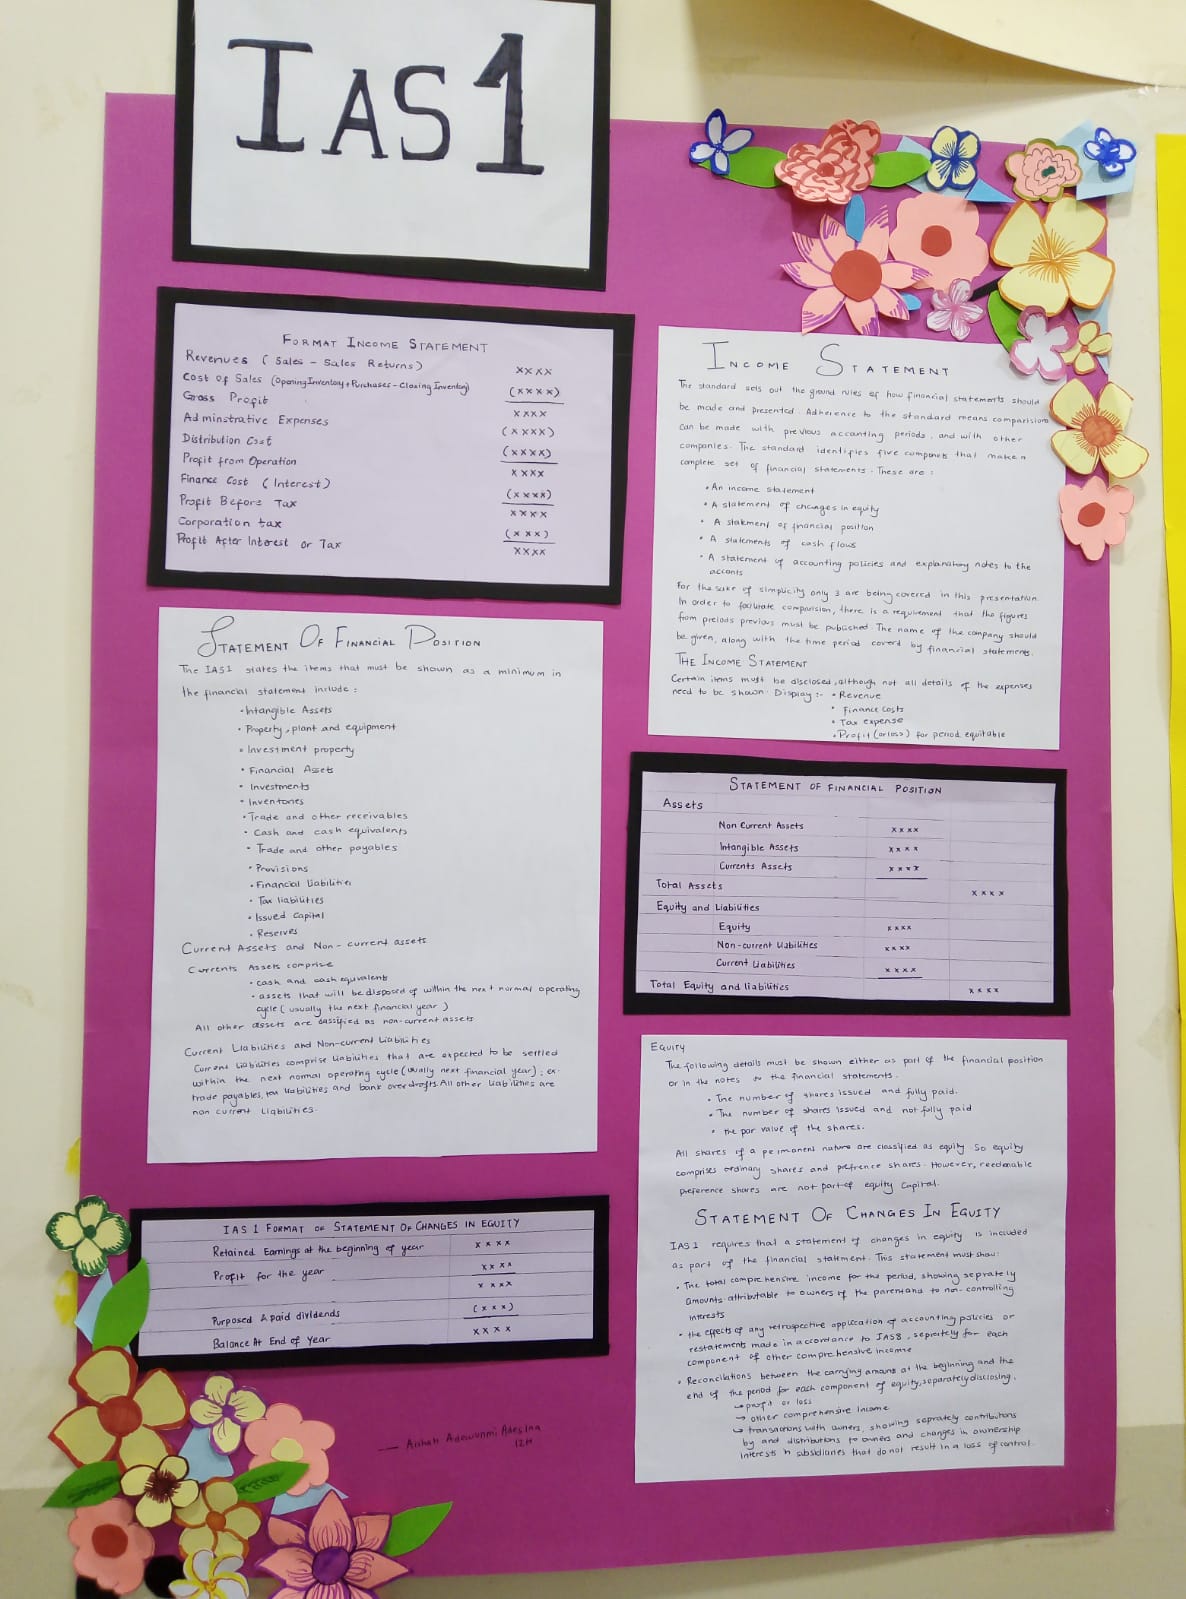 IAS1
FORMAT INCOME STATEMENT
Revenues (Sales - Sales Returns) xxxx
Cost of Sales (Opening Inventory + Purchases - Closing Inventory) (xxxx)
Gross Profit xxxx
Adminstrative Expenses (xxxx)
Distribution Cost (xxxx)
Profit from Operation xxxx
Finance Cost (Interest) (xxxx)
Profit Before Tax xxxx
Corporation tax (xxx)
Profit After Interest or Tax xxxx
STATEMENT OF FINANCIAL POSITION
The IAS1 states the items that must be shown as a minimum in
the financial statement include :
• Intangible Assets
• Property, plant and equipment
• Investment property
• Financial Assets
• Investments
• Inventories
• Trade and other receivables
• Cash and cash equivalents
• Trade and other payables
• Provisions
• Financial liabilities
• Tax liabilities
• Issued Capital
• Reserves
Current Assets and Non-current assets
Currents Assets comprise
• cash and cash equivalent
• assets that will be disposed of within the next normal operating
cycle (usually the next financial year)
All other assets are classified as non-current assets
Current Liabilities and Non-current Liabilities
Current liabilities comprise liabilities that are expected to be settled
within the next normal operating cycle (usually next financial year); ex-
trade payables, tax liabilities and bank overdrafts. All other liabilities are
non current liabilities.
IAS 1 FORMAT OF STATEMENT OF CHANGES IN EQUITY
Retained Earnings at the beginning of year xxxx
Profit for the year xxxx
xxxx
Purposed & paid dividends (xxx)
Balance At End of Year xxxx
Aishah Adewunmi Adesina
12H
INCOME STATEMENT
The standard sets out the ground rules of how financial statements should
be made and presented. Adherence to the standard means comparisions
can be made with previous accounting periods, and with other
companies. The standard identifies five componets that make a
complete set of financial statements. These are :
• An income statement
• A statement of changes in equity
• A statement of financial position
• A statements of cash flows
• A statement of accounting policies and explanatory notes to the
acconts
For the sake of simplicity only 3 are being covered in this presentation.
In order to facilitate comparision, there is a requirement that the figures
from preiods previous must be published. The name of the company should
be given, along with the time period coverd by financial statements.
THE INCOME STATEMENT
Certain items must be disclosed, although not all details of the expenses
need to be shown. Display :- • Revenue
• Finance costs
• Tax expense
• Profit (or loss) for period equitable
STATEMENT OF FINANCIAL POSITION
Assets
Non Current Assets xxxx
Intangible Assets xxxx
Currents Assets xxxx
Total Assets xxxx
Equity and Liabilities
Equity xxxx
Non-current liabilities xxxx
Current liabilities xxxx
Total Equity and liabilities xxxx
EQUITY
The following details must be shown either as part of the financial position
or in the notes to the financial statements.
• The number of shares issued and fully paid.
• The number of shares issued and not fully paid
• the par value of the shares.
All shares of a permanent nature are classified as equity. So equity
comprises ordinary shares and prefrence shares. However, reedemable
preference shares are not part of equity capital.
STATEMENT OF CHANGES IN EQUITY
IAS1 requires that a statement of changes in equity is included
as part of the financial statement. This statement must show:
• The total comprehensive income for the period, showing seprately
amounts attributable to owners of the parent and to non-controlling
interests
• the effects of any retrospective application of accounting policies or
restatements made in accordance to IAS8, seprately for each
component of other comprehensive income
• Reconcilations between the carrying amount at the beginning and the
end of the period for each component of equity, separately disclosing.
↳ profit or loss
→ other comprehensive income
↳ transactions with owners, showing seprately contributions
by and distributions to owners and changes in ownership
interests in subsidiaries that do not result in a loss of control.